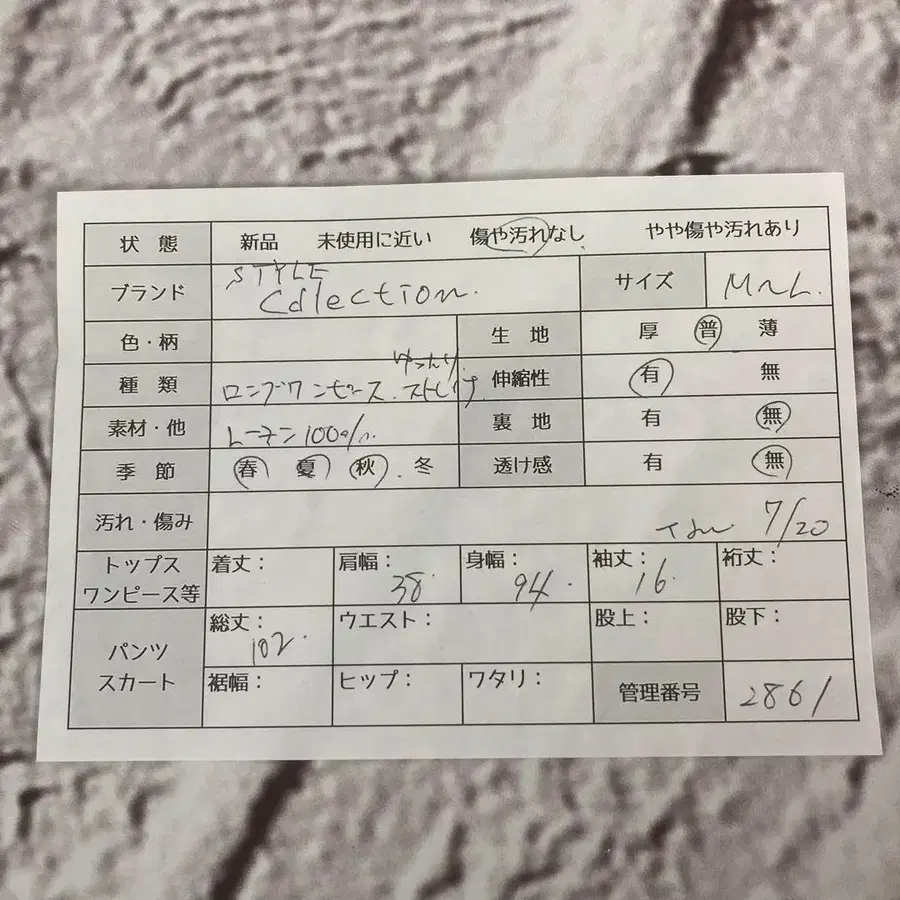 状 態 新品 未使用に近い 傷や汚れなし やや傷や汚れあり
ブランド STYLE サイズ M~L.
Cdlection.
色・柄 生 地 厚 普 薄
ゆったり
種 類 ロングワンピース. 伸縮性 有 無
素材・他 レーヨン100%. 裏 地 有 無
季 節 春 夏 秋 . 冬 透け感 有 無
汚れ・傷み 7/20
トップス 着丈: 肩幅: 身幅: 袖丈: 裄丈:
ワンピース等 38. 94. 16.
総丈: ウエスト: 股上: 股下:
パンツ 102.
スカート 裾幅: ヒップ: ワタリ: 管理番号 2861